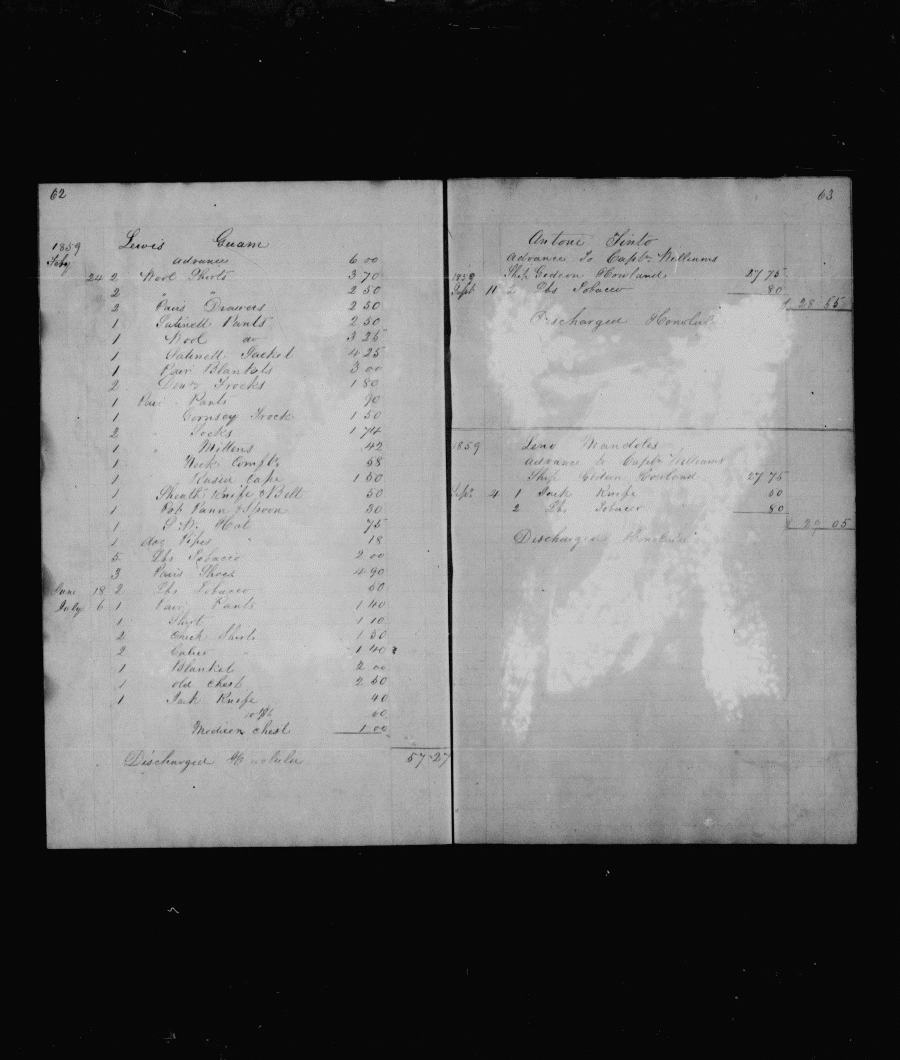 62
1859 Lewis Guam
Feby Advance 6 00
24 2 Wool Shirts 3 70
2 " " 2 50
2 Pairs Drawers 2 50
1 Satinett Pants 2 50
1 Wool do 3 25
1 Satinett Jacket 4 25
1 Pair Blankets 3 00
2 Frocks 1 80
1 Pair Pants 90
1 Gornsey Frock 1 50
2 " Socks 1 74
1 " Mittens 42
1 " Neck Comft 58
1 " Cape 1 50
1 Sheath Knife & Belt 50
1 Pot Pann & Spoon 50
1 S. W. Hat 75
1 doz Pipes 18
5 Lbs Tobacco 2 00
3 Pairs Shoes 4 90
June 18 2 Lbs Tobacco 80
July 6 1 Pair Pants 1 40
1 Shirt 1 10
2 Check Shirts 1 50
2 Calico " 1 40
1 Blanket 2 00
1 old Chest 2 50
1 Jack Knife 40
60
Medicen chest 1 00
57 27
Discharged Honolulu
63
Antone Tinto
Advance To Captn Williams
1859 Ship Gedeon Howland 27 75
Sept 11 2 Lbs Tobacco 80
28 55
Discharged Honolul
1859 Mandoles
Advance to Captn Williams
Ship Gideon Howland 27 75
Sept 4 1 Jack Knife 50
2 Lbs Tobacco 80
29 05
Discharged Honolulu